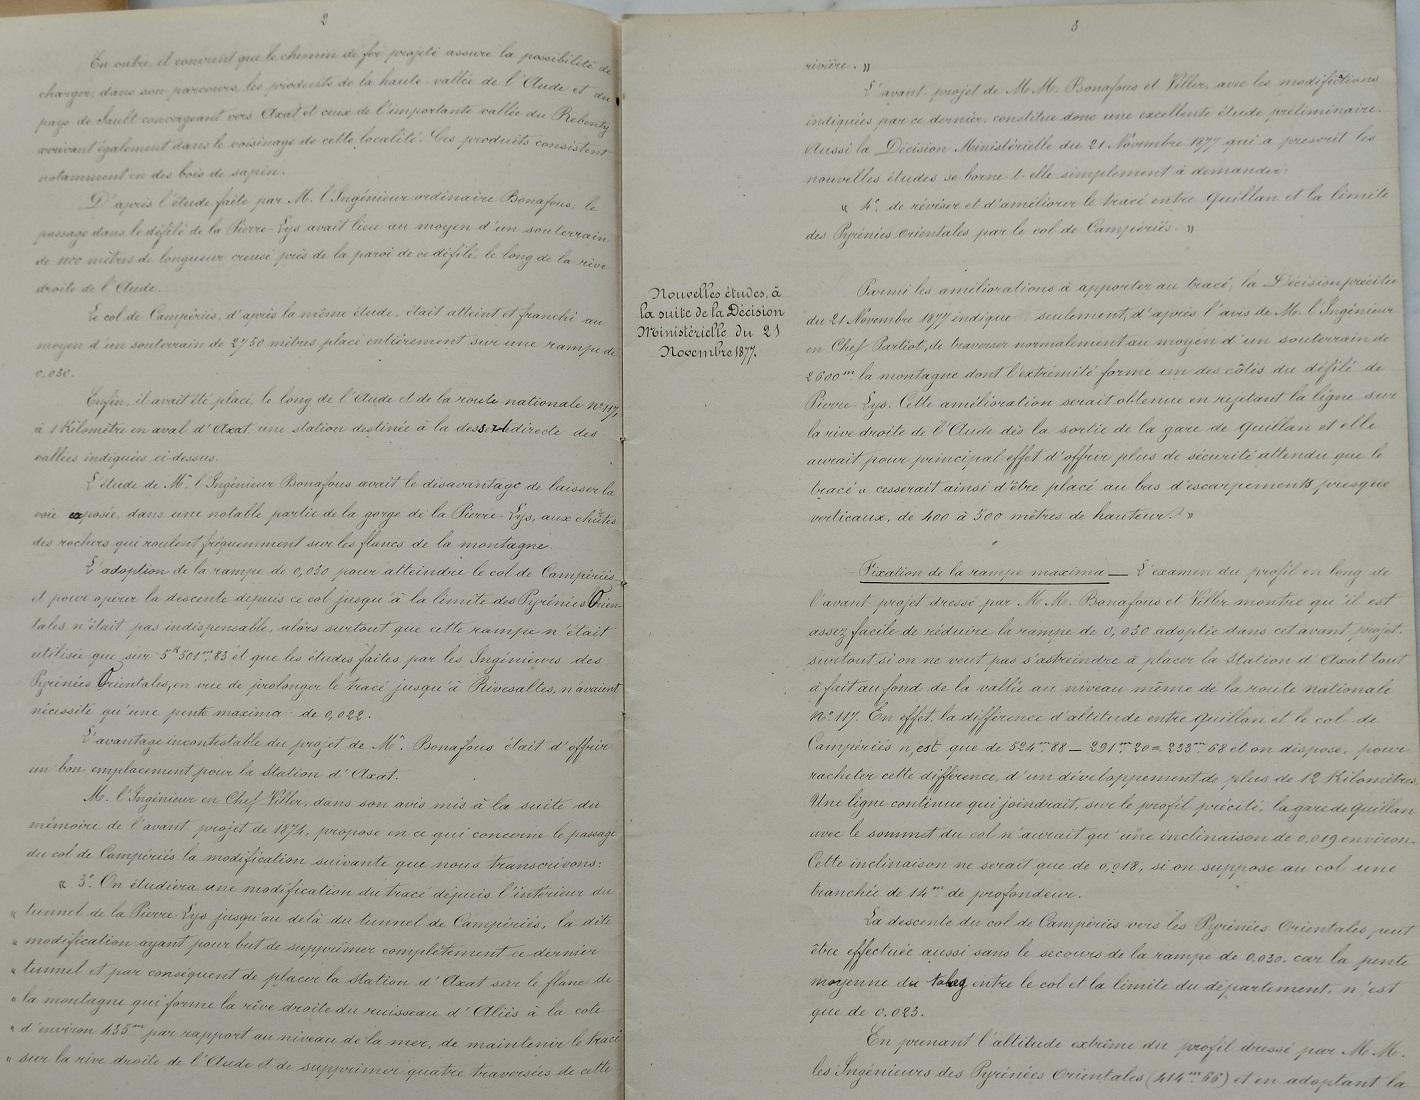 2
En outre, il convient que le chemin de fer projeté assure la possibilité de
charger, dans son parcours, les produits de la haute vallée de l'Aude et du
pays de Sault convergeant vers Axat et ceux de l'importante vallée du Rebenty
arrivant également dans le voisinage de cette localité. Ces produits consistent
notamment en des bois de sapin.
D'après l'étude faite par M. l'Ingénieur ordinaire Bonafous, le
passage dans le défilé de la Pierre-Lys avait lieu au moyen d'un souterrain
de 1100 mètres de longueur creusé près de la paroi de ce défilé, le long de la rive
droite de l'Aude.
Le col de Campériés, d'après la même étude, était atteint et franchi au
moyen d'un souterrain de 2750 mètres placé entièrement sur une rampe de
0,030.
Enfin, il avait été placé, le long de l'Aude et de la route nationale No 117,
à 1 Kilomètre en aval d'Axat une station destinée à la directe des
vallées indiquées ci-dessus.
L'étude de Mr l'Ingénieur Bonafous avait le désavantage de laisser la
voie exposée, dans une notable partie de la gorge de la Pierre-Lys, aux chûtes
des rochers qui roulent fréquemment sur les flancs de la montagne.
L'adoption de la rampe de 0,030 pour atteindre le col de Campériés
et pour opérer la descente depuis ce col jusqu'à la limite des Pyrénées Orien-
tales n'était pas indispensable, alors surtout que cette rampe n'était
utilisée que sur 5k301m,83 et que les études faites par les Ingénieurs des
Pyrénées Orientales, en vue de prolonger le tracé jusqu'à Rivesaltes, n'avaient
nécessité qu'une pente maxima de 0,022.
L'avantage incontestable du projet de Mr. Bonafous était d'offrir
un bon emplacement pour la Station d'Axat.
M. l'Ingénieur en Chef Viller, dans son avis mis à la suite du
mémoire de l'avant projet de 1874, propose en ce qui concerne le passage
du col de Campériés la modification suivante que nous transcrivons:
« 3o. On étudiera une modification du tracé depuis l'intérieur du
« tunnel de la Pierre-Lys jusqu'au delà du tunnel de Campériés, la dite
« modification ayant pour but de supprimer complètement ce dernier
« tunnel et par conséquent de placer la station d'Axat sur le flanc de
« la montagne qui forme la rive droite du ruisseau d'Aliés à la cote
« d'environ 435m par rapport au niveau de la mer, de maintenir le tracé
« sur la rive droite de l'Aude et de supprimer quatre traversées de cette
3
rivière. »
L'avant-projet de M.M. Bonafous et Viller, avec les modifictions
indiquées par ce dernier, constitue donc une excellente étude préliminaire.
Aussi la Décision Ministérielle du 21 Novembre 1877 qui a prescrit les
nouvelles études se borne-t-elle simplement à demander:
« 4o. de réviser et d'améliorer le tracé entre Quillan et la limite
des Pyrénées Orientales par le col de Campériés. »
Nouvelles études, à
la suite de la Décision
Ministérielle du 21
Novembre 1877.
Parmi les améliorations à apporter au tracé, la Décision précitée
du 21 Novembre 1877 indique seulement, d'après l'avis de M. l'Ingénieur
en Chef Partiot, de traverser normalement au moyen d'un souterrain de
2600m la montagne dont l'extrémité forme un des côtés du défilé de
Pierre-Lys. Cette amélioration serait obtenue en rejetant la ligne sur
la rive droite de l'Aude dès la sortie de la gare de Quillan et elle
aurait pour principal effet d'offrir plus de sécurité attendu que le
tracé « cesserait ainsi d'être placé au bas d'escarpements presque
verticaux, de 400 à 500 mètres de hauteur. »
Fixation de la rampe maxima — L'examen du profil en long de
l'avant projet dressé par M.M. Bonafous et Viller montre qu'il est
assez facile de réduire la rampe de 0,030 adoptée dans cet avant projet,
surtout si on ne veut pas s'astreindre à placer la Station d'Axat tout
à fait au fond de la vallée au niveau même de la route nationale
No. 117. En effet, la différence d'altitude entre Quillan et le col de
Campériés n'est que de 524m.88 — 291m.20 = 233m.68 et on dispose, pour
racheter cette différence, d'un développement de plus de 12 Kilomètres.
Une ligne continue qui joindrait, sur le profil précité, la gare de Quillan
avec le sommet du col n'aurait qu'une inclinaison de 0,019 environ.
Cette inclinaison ne serait que de 0,018, si on suppose au col une
tranchée de 14m de profondeur.
La descente du col de Campériés vers les Pyrénées Orientales peut
être effectuée aussi sans le secours de la rampe de 0.030, car la pente
moyenne du entre le col et la limite du département, n'est
que de 0,023.
En prenant l'altitude extrême du profil dressé par M.M.
les Ingénieurs des Pyrénées Orientales (414m.66) et en adoptant la